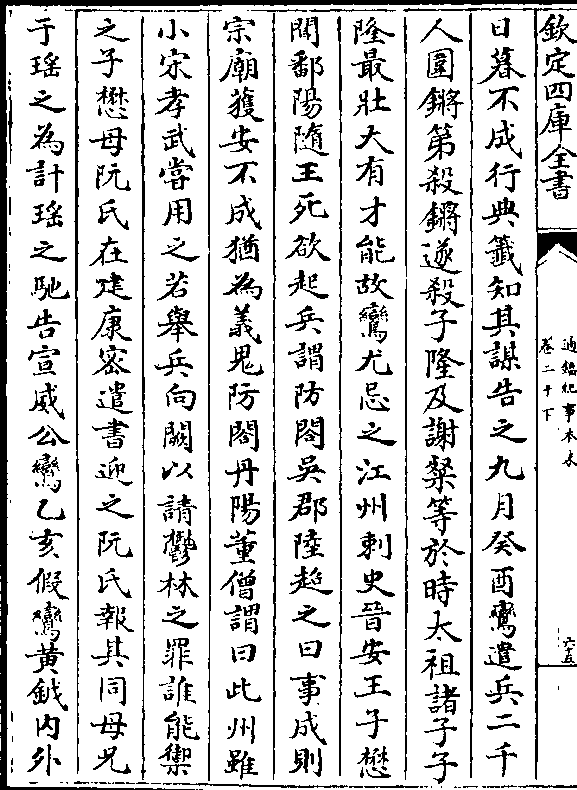 欽定四庫全書
通鑑紀事本末
卷二十下
六五
日暮不成行典籤知其謀告之九月癸酉鸞遣兵二千
人圍鏘第殺鏘遂殺子隆及謝粲等於時太祖諸子子
隆最壯大有才能故鸞尤忌之江州刺史晉安王子懋
聞鄱陽隨王死欲起兵謂防閤吳郡陸超之曰事成則
宗廟獲安不成猶為義鬼防閤丹陽董僧謂曰此州雖
小宋孝武嘗用之若舉兵向闕以請鬱林之罪誰能禦
之子懋母阮氏在建康密遣書迎之阮氏報其同母兄
于瑶之為計瑶之馳告宣威公鸞乙亥假鸞黃鉞内外